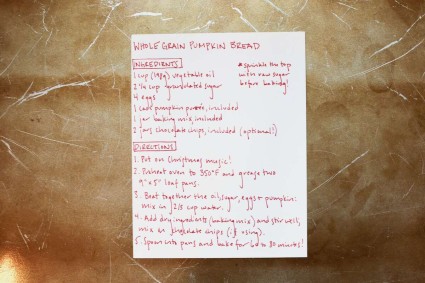 WHOLE GRAIN PUMPKIN BREAD
INGREDIENTS
1 cup (198g) vegetable oil
2 1/4 cup granulated sugar
4 eggs
1 can pumpkin puree, included
1 jar baking mix, included
2 jars chocolate chips, included (optional!)
* sprinkle the tops
with raw sugar
before baking!
DIRECTIONS
1. Put on Christmas music!
2. Preheat oven to 350°F and grease two
9" x 5" loaf pans.
3. Beat together the oil, sugar, eggs + pumpkin.
mix in 2/3 cup water.
4. Add dry ingredients (baking mix) and stir well,
mix in chocolate chips (if using).
5. Spoon into pans and bake for 60 to 80 minutes!